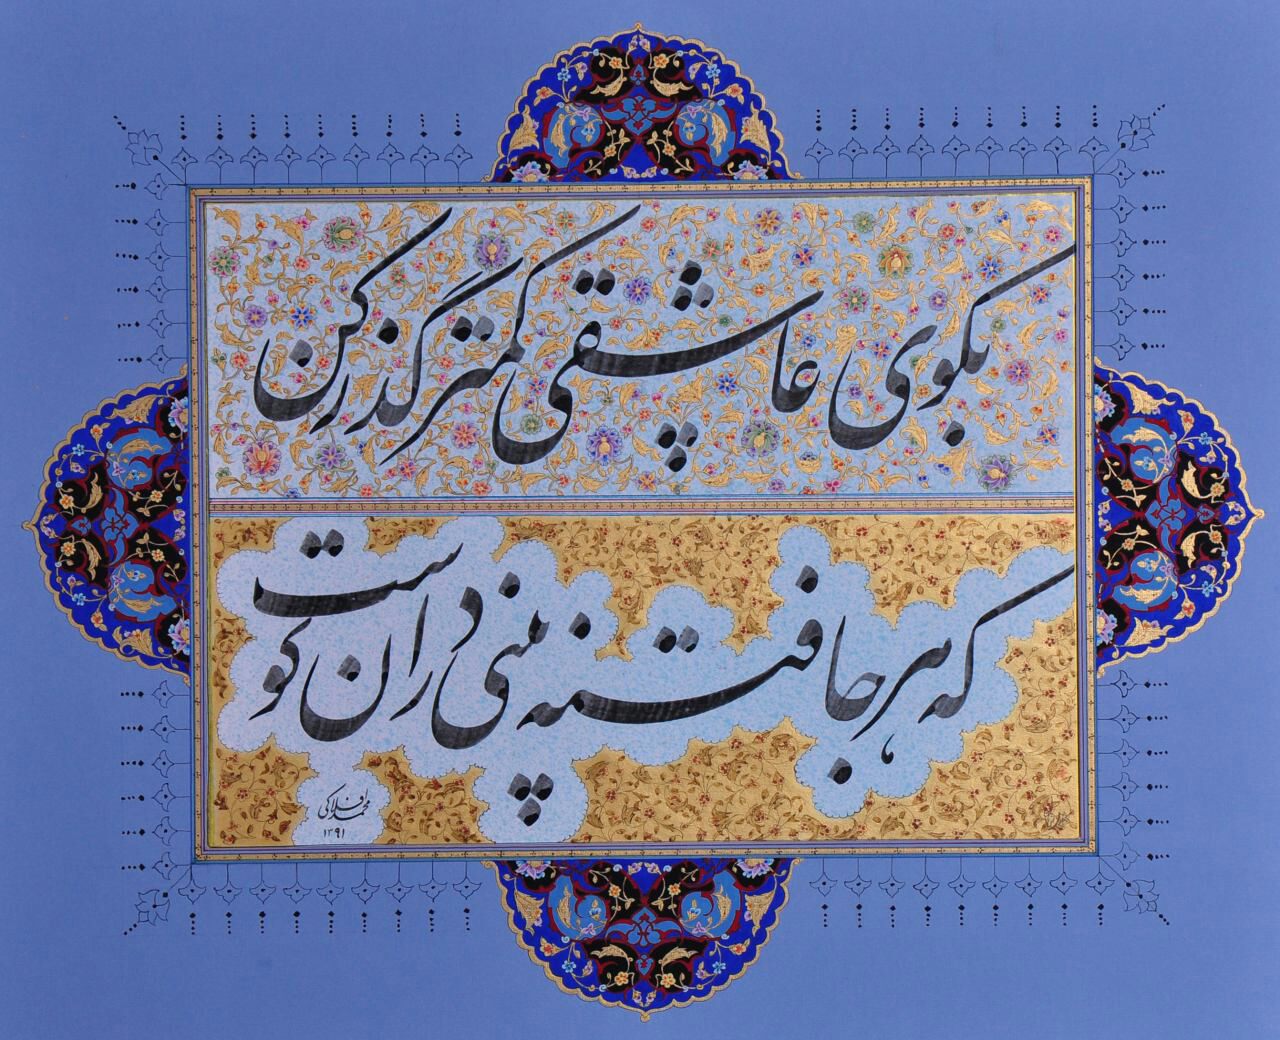 بکوی عاشقی کمتر گذر کن
که هر جا فتنه بینی در آن کو است
محمد افلاکی
۱۳۹۱